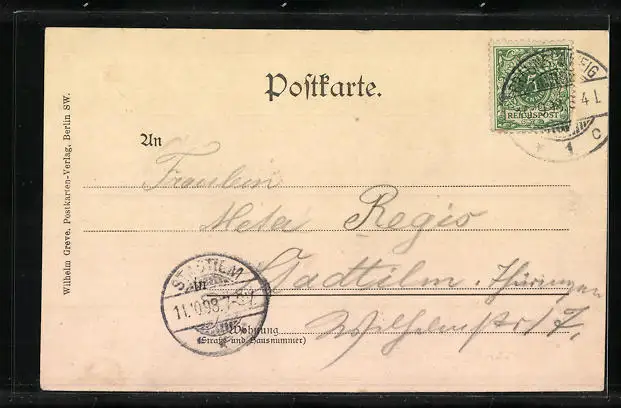 Postkarte.
REICHSPOST
4 1.
* 1 C
An
Fräulein
Meta Regis
Stadtilm, Thüringen
in
STADTILM
11.10.98. 7-8V.
Wilhelmstr. 17.
Wohnung
(Straße und Hausnummer)
Wilhelm Greve, Postkarten-Verlag, Berlin SW.